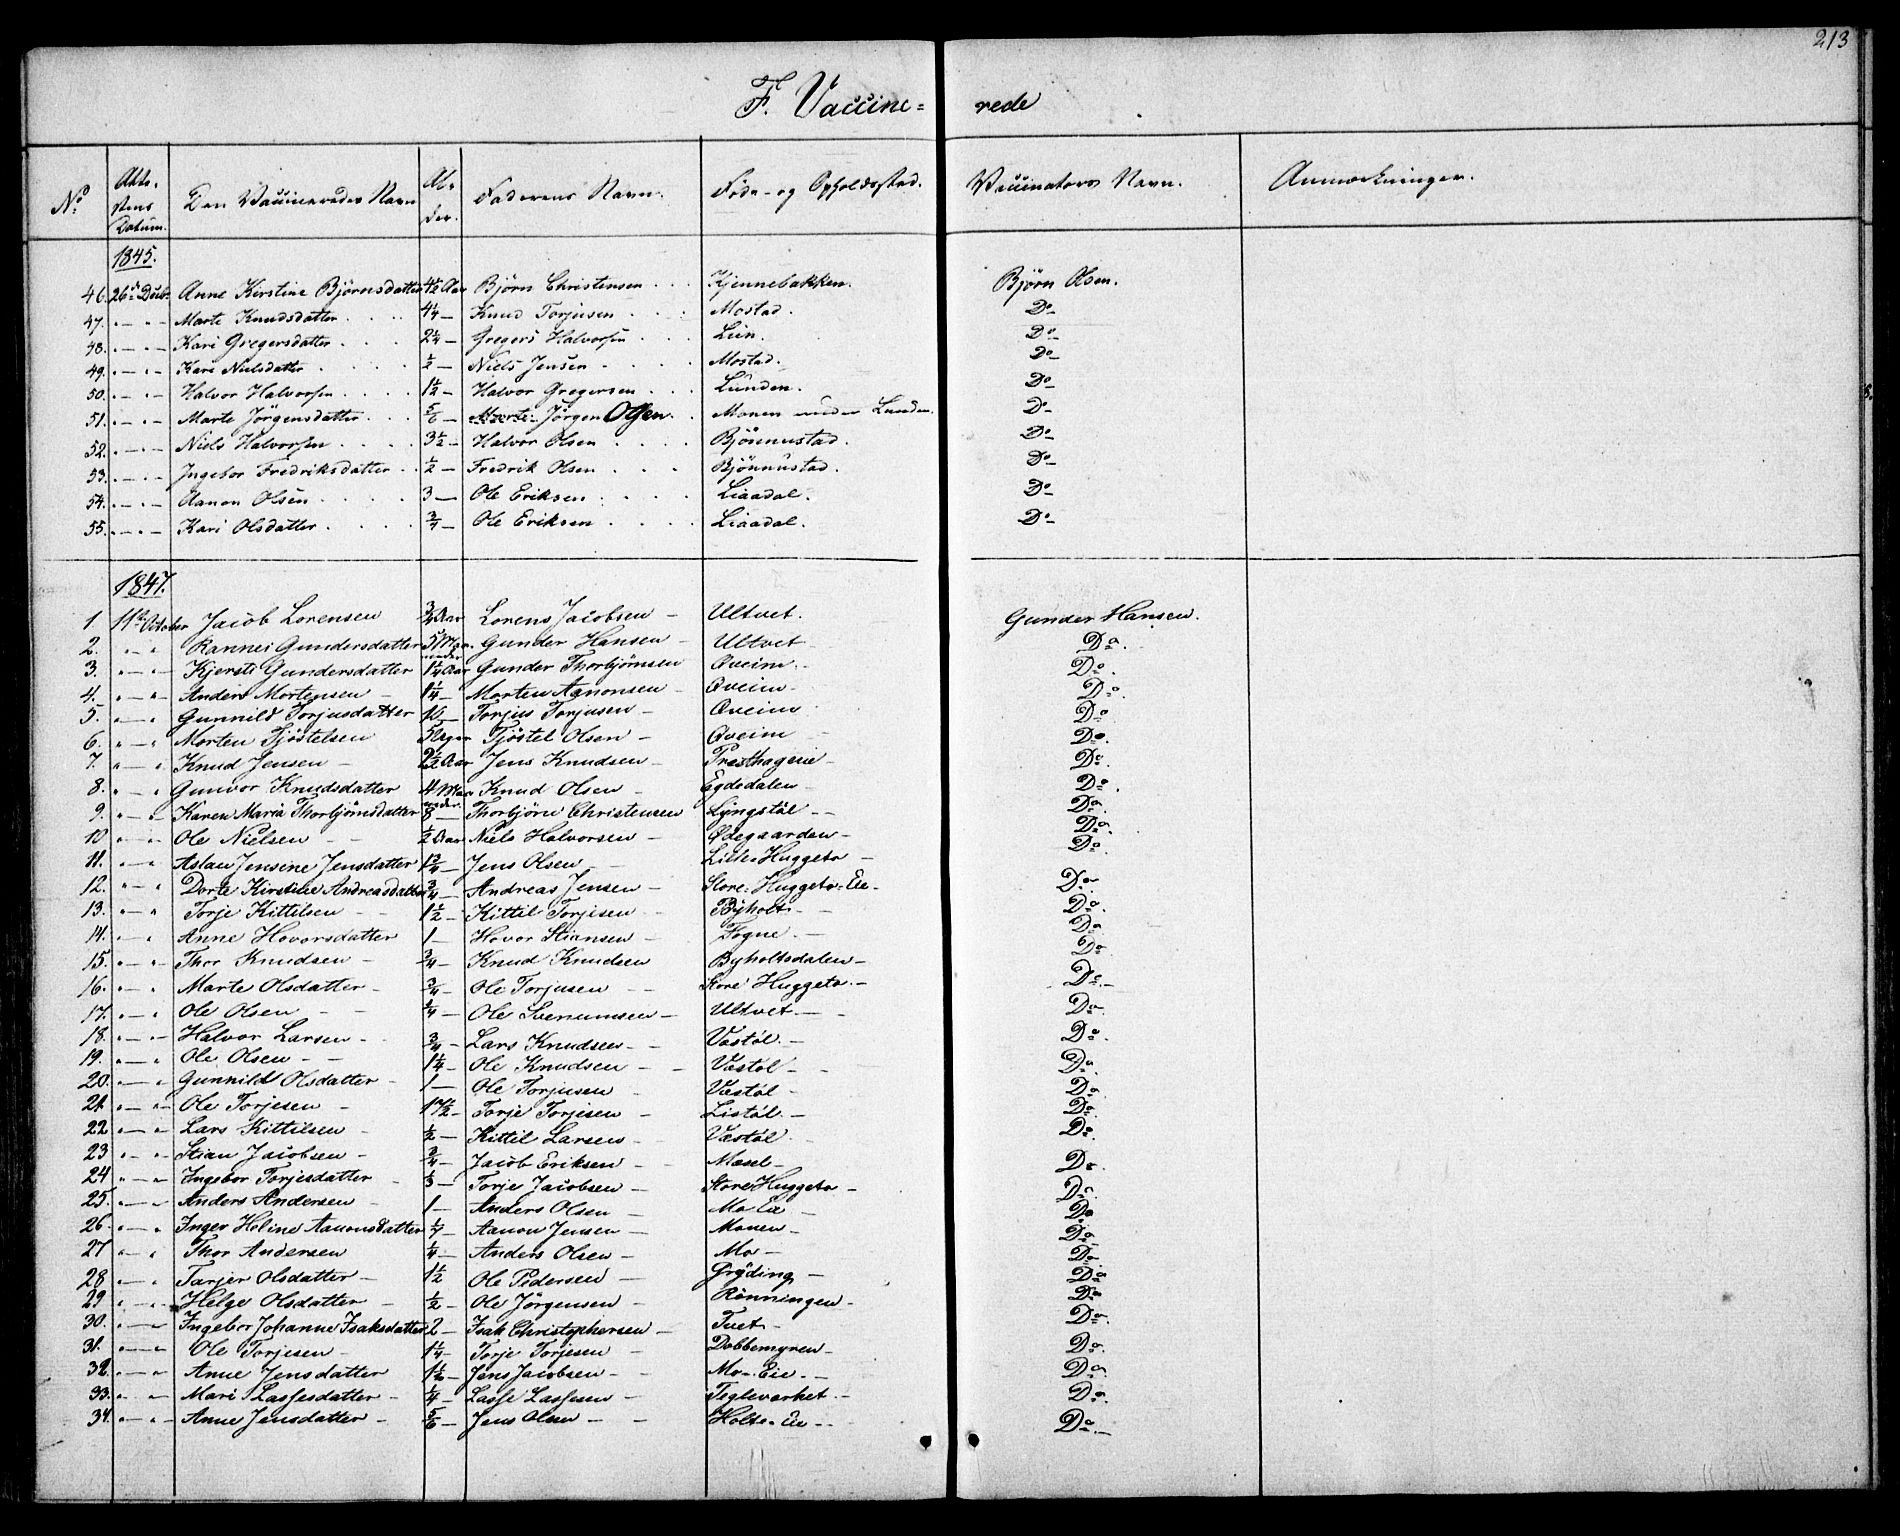 213
F. Vaccine- rede
No Atte-stens Datum. Den Vaccineredes Navn Al-der. Faderens Navn. Føde- og Opholdssted. Vaccinators Navn. Anmærkninger.
1845.
46. 26de Decbr. Anne Kirstine Björnsdatter 4½ Aar Björn Christensen Kjennebakken. Björn Olsen.
47. " — " — Marte Knudsdatter 4¼ — Knud Torjusen Mostad. Do
48. " — " — Kari Gregersdatter 2¼ — Gregers Halvorsen Lien. Do
49. " — " — Kari Nielsdatter ½ — Niels Jensen Mostad. Do
50. " — " — Halvor Halvorsen 1½ — Halvor Gregersen Lunden. Do
51. " — " — Marte Jörgensdatter 5/6 — Marte Jörgen Olsen Monen under Lunden. Do
52. " — " — Niels Halvorsen 3½ — Halvor Olsen Björnnustad. Do
53. " — " — Ingebor Fredriksdatter ½ — Fredrik Olsen Björnnustad. Do
54. " — " — Aanon Olsen 3 — Ole Eriksen Liaadal. Do
55. " — " — Kari Olsdatter ¾ — Ole Eriksen Liaadal. Do
1847.
1. 11te October Jacob Lorensen ¾ Aar Lorens Jacobsen — Ultvet. Gunder Hansen.
2. " — " Rannei Gundersdatter 5 Maaneder Gunder Hansen — Ultvet Do.
3. " — " Kjersti Gundersdatter 1¼ Aar Gunder Thorbjörnsen Øveim. Do.
4. " — " Anders Mortensen 1¼ — Morten Aanonsen — Øveim — Do.
5. " — " Gunnild Torjusdatter 10 — Torjus Torjusen — Øveim Do.
6. " — " Morten Tjöstelsen 5 Uger Tjöstel Olsen — Øveim Do.
7. " — " Knud Jensen — 2½ Aar Jens Knudsen — Presthagene — Do.
8. " — " Gunvor Knudsdatter 4 Maaneder Knud Olsen — Egdedalen — Do.
9. " — " Karen Maria Thorbjörnsdatter 8 — Thorbjörn Christensen Lyngstöl — Do.
10 " — " Ole Nielsen ½ Aar Niels Halvorsen — Ødegaarden — Do.
11. " — " Aslau Jensine Jensdatter 1¾ — Jens Olsen — Lille Huggeto — Do.
12. " — " Dorte Kirstine Andreasdatter ¾ — Andreas Jensen — Store Huggeto Eie — Do.
13. " — " Torje Kittilsen 1½ — Kittil Torjesen Byholt — Do.
14. " — " Anne Hovorsdatter 1 — Hovor Stiansen — Fogne. — Do
15. " — " Thor Knudsen — ¾ — Knud Knudsen Byholtsdalen — Do
16. " — " Marte Olsdatter — ¾ — Ole Torjusen — Store Huggeto. — Do. —
17. " — " Ole Olsen — ¾ — Ole Svenumsen — Ultvet. — Do.
18. " — " Halvor Larsen — ¾ — Lars Knudsen — Vastöl — Do.
19. " — " Ole Olsen — 1¼ — Ole Knudsen — Vastöl — Do.
20. " — " Gunnild Olsdatter — 1 — Ole Torjusen Vastöl — Do
21. " — " Ole Torjesen — 1½ — Torje Torjesen — Listöl. — Do.
22. " — " Lars Kittilsen — ½ — Kittil Larsen — Vastöl. Do.
23 " — " Stian Jacobsen — ¾ — Jacob Eriksen — Mæsel — Do.
24 " — " Ingebor Torjesdatter — ⅓ — Torje Jacobsen — Store Huggeto — Do.
25. " — " Anders Andersen 1 — Anders Olsen — Mo Eie — Do
26. " — " Inger Heline Aanonsdatter ¼ — Aanon Jensen — Monen — Do
27 " — " Thor Andersen ¼ — Anders Olsen — Mo — Do
28 " — " Tarjer Olsdatter — 1½ Ole Pedersen — Gryding — Do
29 " — " Helge Olsdatter — ½ — Ole Jörgensen — Rönningen — Do
30. " — " Ingebor Johanne Isaksdatter 2 — Isak Christophersen — Tvet — Do.
31. " — " Ole Torjesen — 1¼ — Torje Torjesen — Dobbemyren — Do.
32. " — " Anne Jensdatter 1½ — Jens Jacobsen — Mo — Eie — Do.
33. " — " Mari Lassesdatter — ¼ — Lasse Lassesen — Teglverket — Do.
34. " — " Anne Jensdatter — 5/6 — Jens Olsen — Holte — Eie — Do. —